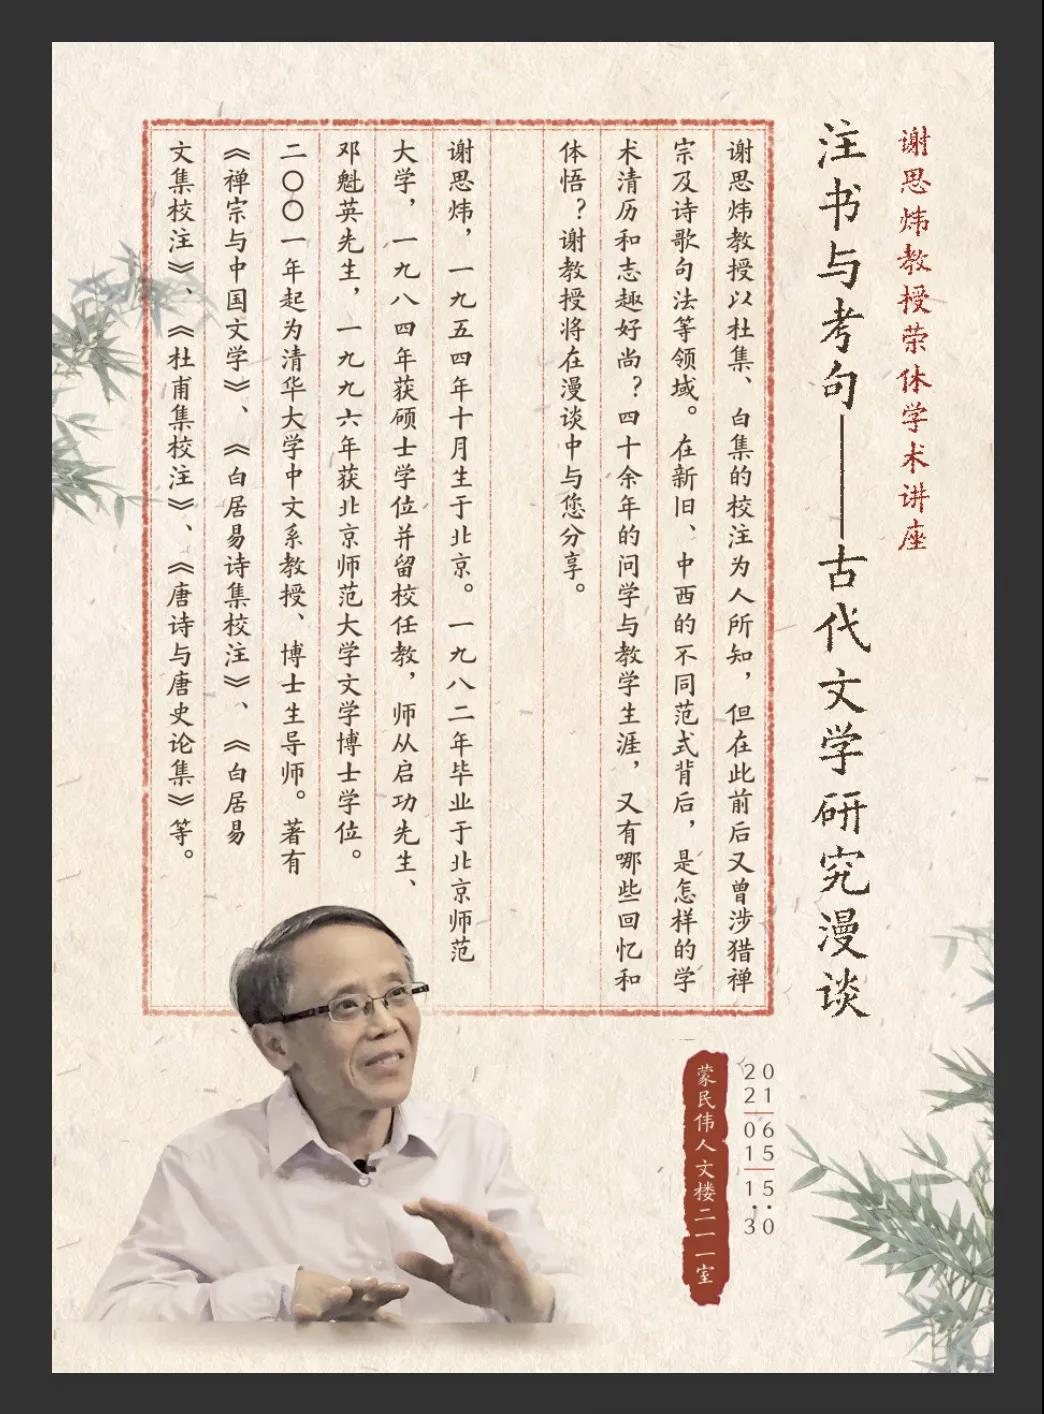 谢思炜教授荣休学术讲座
注书与考句——古代文学研究漫谈
谢思炜教授以杜集、白集的校注为人所知，但在此前后又曾涉猎禅
宗及诗歌句法等领域。在新旧、中西的不同范式背后，是怎样的学
术清历和志趣好尚？四十余年的问学与教学生涯，又有哪些回忆和
体悟？谢教授将在漫谈中与您分享。
谢思炜，一九五四年十月生于北京。一九八二年毕业于北京师范
大学，一九八四年获硕士学位并留校任教，师从启功先生、
邓魁英先生，一九九六年获北京师范大学文学博士学位。
二〇〇一年起为清华大学中文系教授、博士生导师。著有
《禅宗与中国文学》、《白居易诗集校注》、《白居易
文集校注》、《杜甫集校注》、《唐诗与唐史论集》等。
20
21
06
15
15
··
30
蒙民伟人文楼二一一室